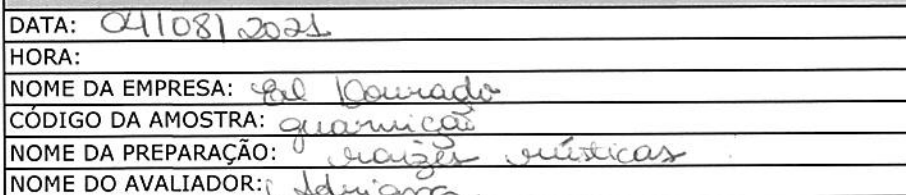 DATA: 04/08/2021
HORA:
NOME DA EMPRESA: Dourado
CÓDIGO DA AMOSTRA: guarnição
NOME DA PREPARAÇÃO: raízes rústicas
NOME DO AVALIADOR: Adriana